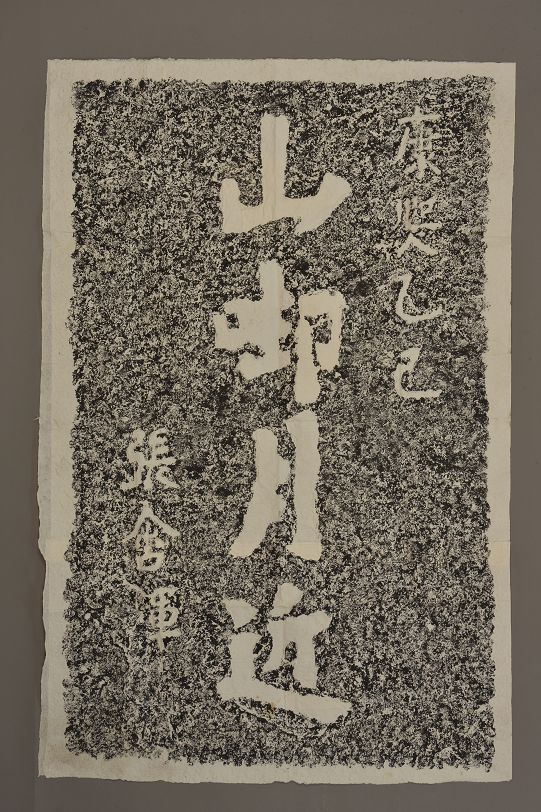 康熙乙巳
山邨月近
張